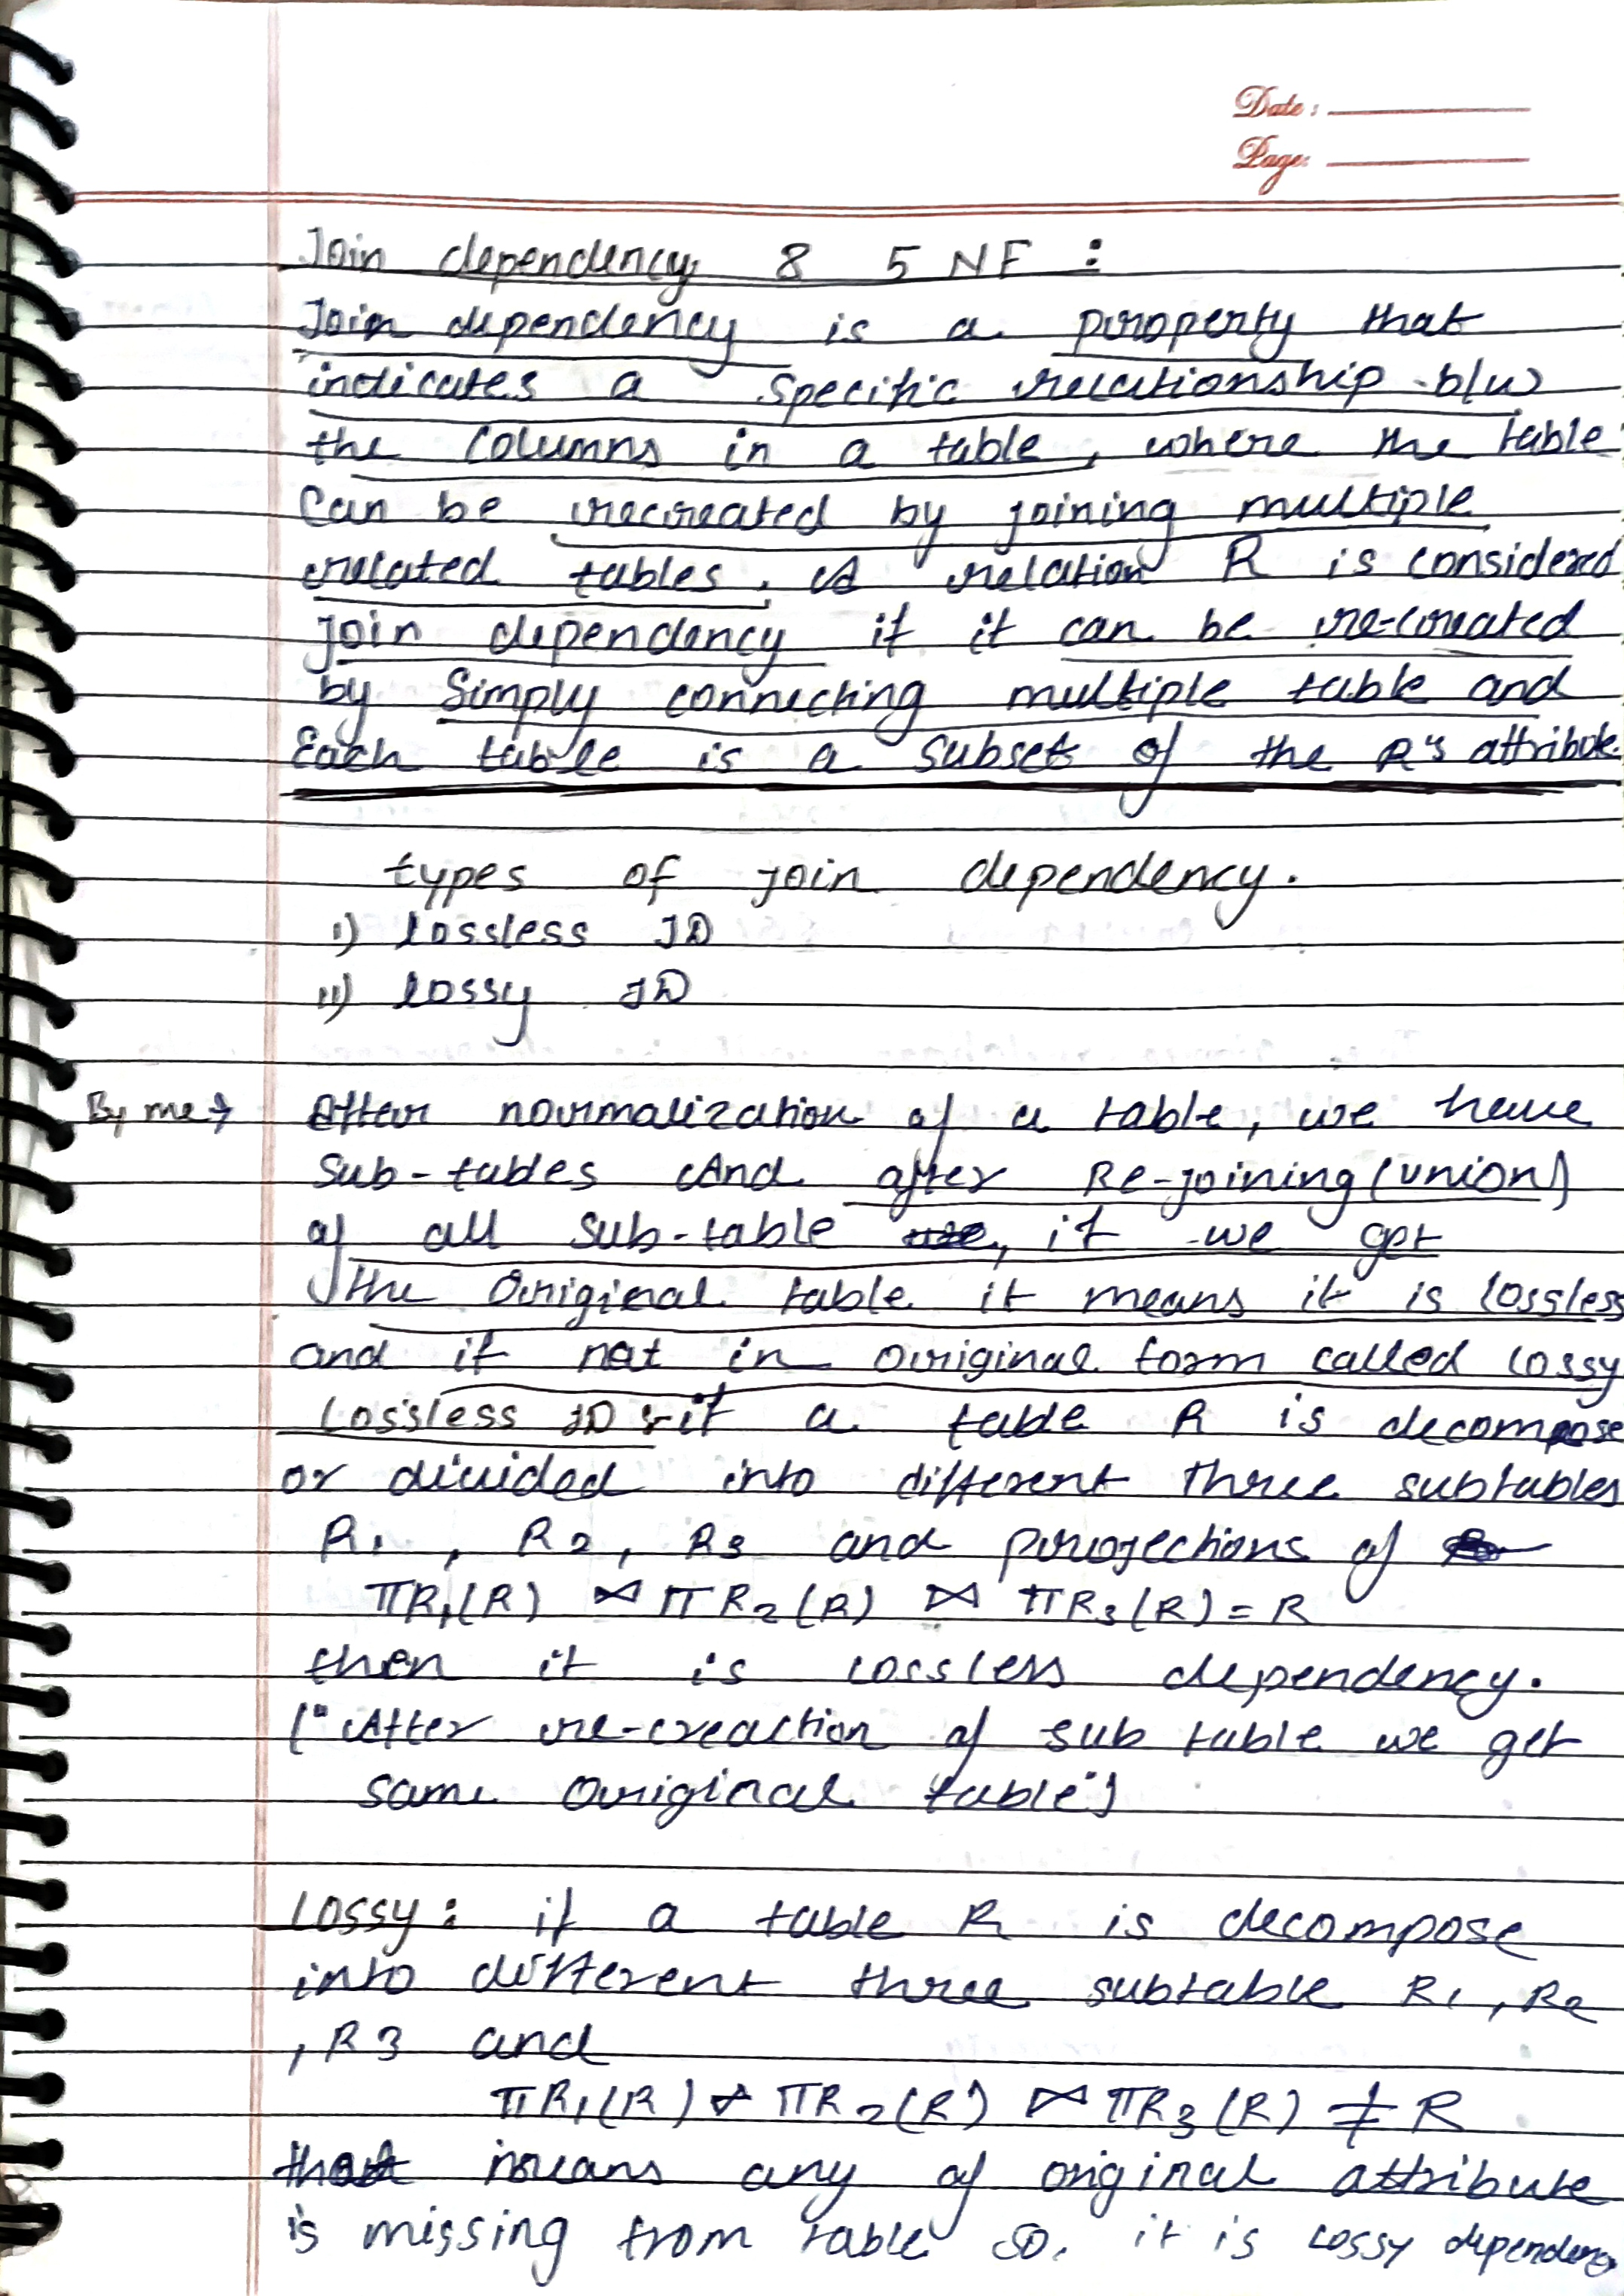 Date :
Page:
Join dependency & 5 NF :
Join dependency is a property that
indicates a specific relationship b/w
the columns in a table, where the table
can be recreated by joining multiple
related tables. A relation R is considered
join dependency if it can be re-created
by simply connecting multiple table and
Each table is a subset of the R's attribute.
types of join dependency.
i) lossless JD
ii) lossy JD
By me → After normalization of a table, we have
sub-tables And after Re-joining (union)
of all sub-table , if we get
the original table it means it is lossless
and if not in original form called lossy
Lossless JD :- if a table R is decompose
or divided into different three subtables
R1 , R2, R3 and projections of
πR1(R) ⋈ πR2(R) ⋈ πR3(R) = R
then it is lossless dependency.
("After re-creaction of sub table we get
same original table")
Lossy : if a table R is decompose
into different three subtable R1, R2
, R3 and
πR1(R) ⋈ πR2(R) ⋈ πR3(R) ≠ R
that means any of original attribute
is missing from table so. it is lossy dependency